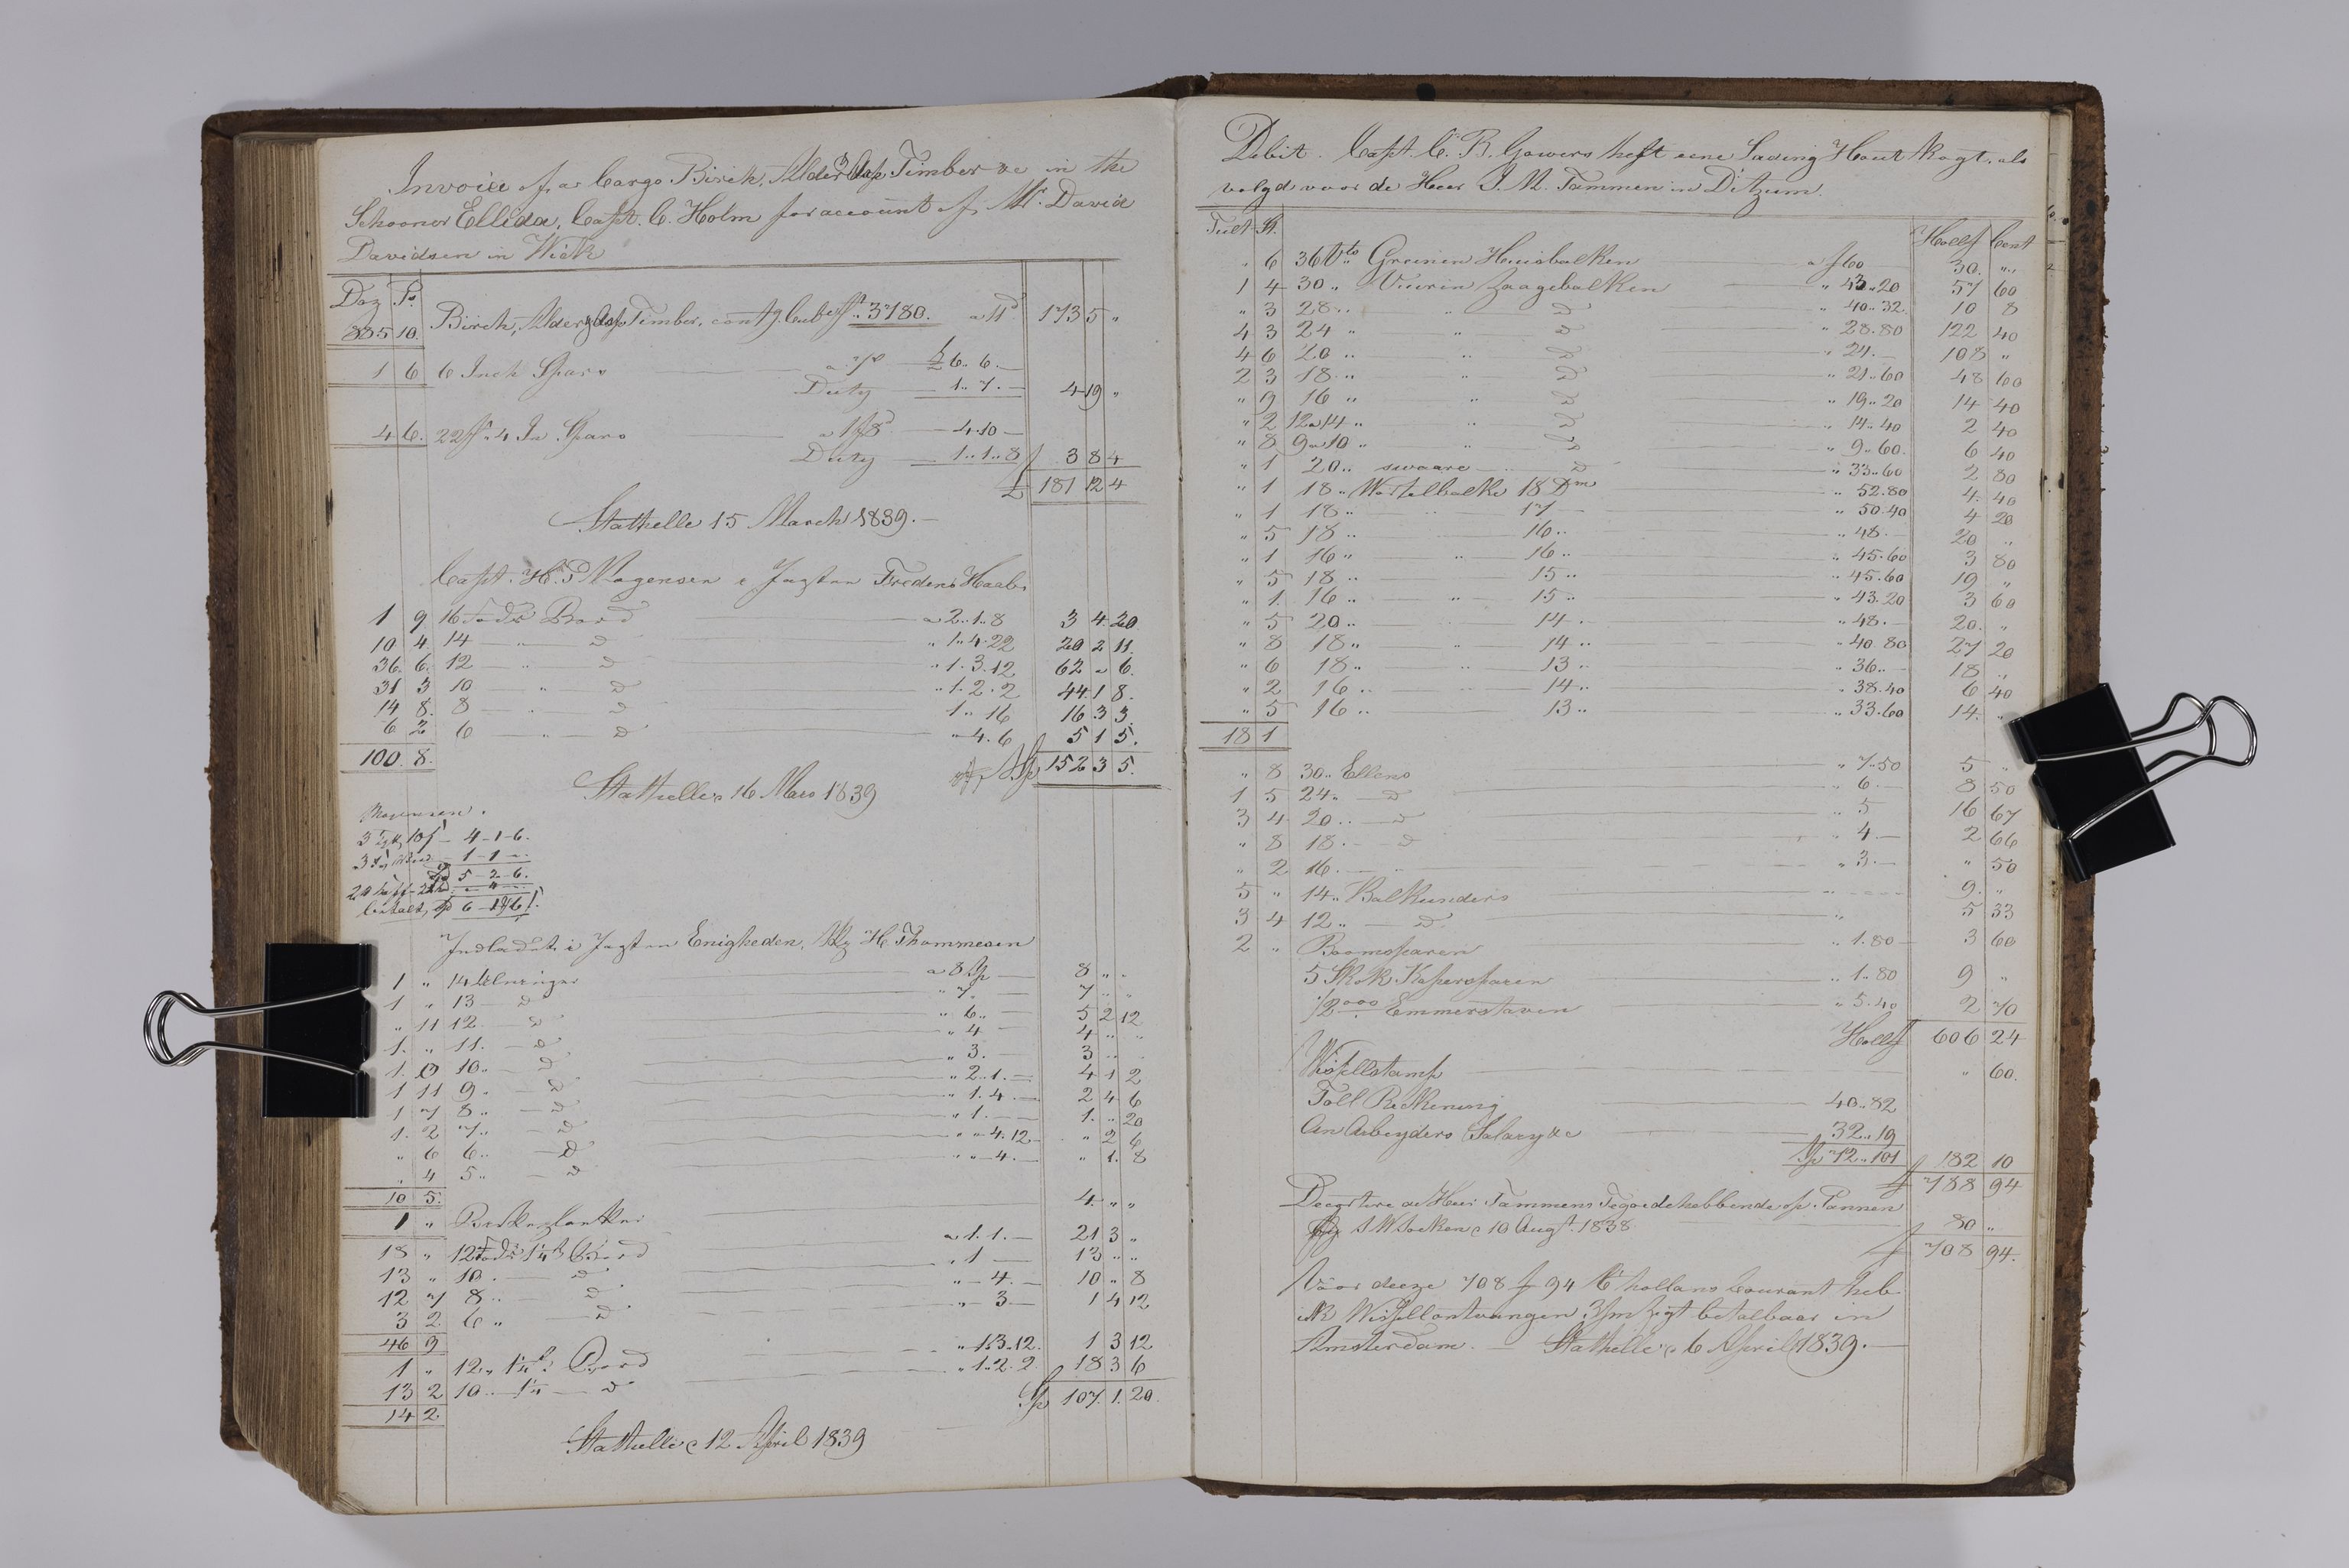 Invoice of a Cargo Birch, Alder & Asp Timber &c in the
Schooner Ellida, Capt. C. Holm for account of Mr. David
Davidsen in Wick
Doz P.
385 10. Birch, Alder & Asp Timber, contg. Cubeft. 3780. a 11d 173 5 "
1 6 6 Inch Spars a £ 6.. 6. —
Duty — 1.. 7. — 4 19 "
4 6. 22 f 4 In Spars a 4.10 —
Duty — 1.. 1.. 8 3 8 4
£ 181 12 4
Stathelle 15 March 1839. —
Capt. H. P. Mogensen i Jagten Fredens Haab
1 9 16 Fods Bord a 2.. 1.. 8 3 4 20
10 4 14 — " — D " 1.. 4. 22 20 2 11.
36. 6. 12 — " — D " 1. 3. 12 62 " 6.
31 3 10 — " — D " 1. 2. 2 44 1 8.
14 8. 8 — " — D 1.. 16 16 3 3.
6 2 6 — " — D " 4. 6 5 1 5.
100. 8. Sp 152 3 5.
Stathelle 16 Mars 1839
Mogensen.
4 - 1 - 6.
1 - 1 -
5 - 2 - 6.
betalt, Sp
Indladet i Jagten Enigheden, H. Thommesen
1 " 14 Alninger a 8 Sp — 8 " "
1 " 13 — D " 7. — 7 " "
" 11 12. — D " 6.. — 5 2 12
1. " 11. — D " 4 — 4 " "
1. 0 10.. — D " 3. — 3 "
1 11 9. — D " 2.. 1. — 4 1 2
1 7 8.. — D " 1. 4. — 2 4 6
1. 2 7.. — D " 1. — 1. " 20
" 6 6.. — D " " 4. 12 — " 2 6
" 4 5.. — D " " 4. — " 1. 8
10 5.
1 " 4 " "
18 " 12 Fods 1¼ Bord a 1. 1. — 21 3 "
13 " 10. — D " 1 — 13 " "
12 7 8.. — D " — 4. — 10 " 8
3 2 6 " — D " — 3 — 1 4 12
46 9
1 " 12 " 1¼ Bord " 1. 3. 12. 1 3 12
13 2 10.. 1¼ — D " 1. 2. 2. 18 3 6
14 2 Sp 107. 1. 20.
Stathelle 12 April 1839
Debit. Capt. C. R. Gowers heft eene Lading Hout kogt, als
volgd voor de Heer J. M. Tammen in Ditzum.
Tult St. Hollf Cent
" 6 36 Greinen Huisbalken a f 60 30. "
1 4 30 " Vuuren Zaagebalken " 43.. 20 57 60
" 3 28.. " D " 40.. 32. 10 8
4 3 24 " " D " 28. 80 122 40
4 6 20.. " D " 24. — 108 "
2 3 18.. " D " 21.. 60 48 60
" 9 16 " " D " 19.. 20 14 40
" 2 12 a 14 " " D " 14.. 40 2 40
" 8 9 a 10 " " D " 9.. 60. 6 40
" 1 20.. swaare — D " 33.. 60 2 80
" 1 18 " Wortelbalke 18 Dm " 52. 80 4. 40
" 1 18 " 17 — " 50. 40 4 20
" 5 18 " 16.. " 48. — 20 "
" 1 16 " " 16.. " 45. 60 3 80
" 5 18.. 15 " " 45. 60 19 "
" 1. 16.. " 15.. " 43. 20 3 60
" 5 20.. 14. " 48. — 20. "
" 8 18 " " 14.. " 40. 80 27 20
" 6 18 " " 13.. " 36.. — 18 "
" 2 16.. 14.. " 38. 40 6 40
" 5 16.. 13.. " 33. 60 14. "
18 1
" 8 30.. Ellens " 7. 50 5 "
1 5 24. — D " 6. — 8 50
3 4 20.. — D " 5 16 67
" 8 18. — D " 4. — 2 66
" 2 16. — " " 3. — " 50
5 " 14.. Balkunders " 9. "
3 4 12 " — D. " 5 33
2 " Boomsparen " 1. 80 — 3 60
5 Skok Kapersparen " 1.. 80 9 "
½ 000 Emmerstaven " 5. 40 2 70
Hollf 606 24
Wissellstamp " 60.
Toll Rekening 40.. 82
An Arbeyders Salary &c 32.. 19
Sp 72.. 101 182 10
f 788 94
Deegstire de Heer Tammens Tegoedehebbende op Pannen
10 Augst. 1838 80 "
f 708 94.
Voor deeze 708 f 94 Ct hollans Courant heb
ik Wissell ontvangen 3/m Zigt betalbaar in
Amsterdam. — Stathelle 6 April 1839. —